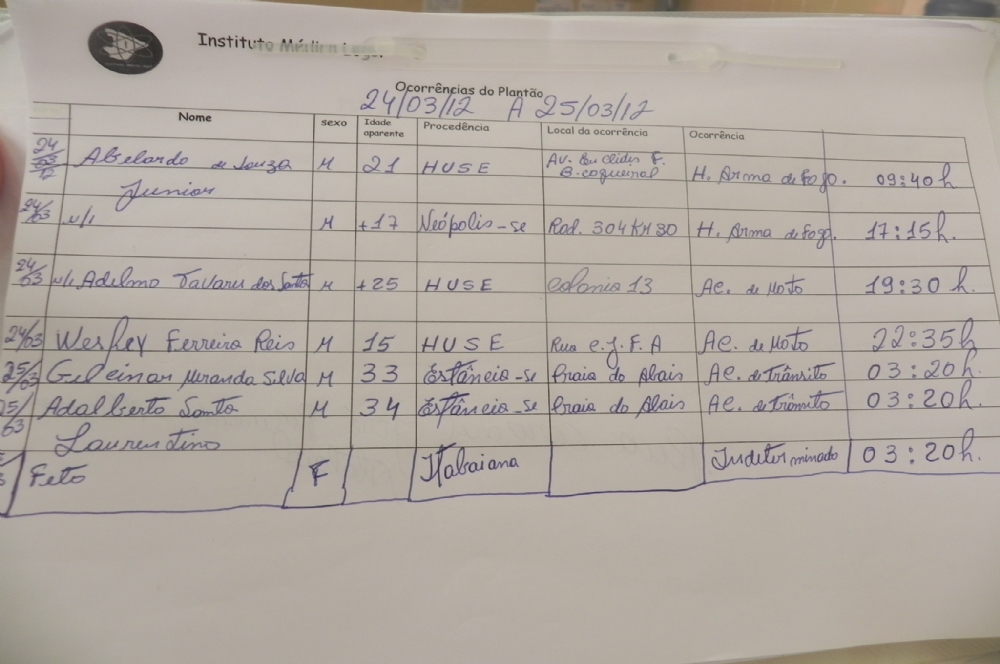 Instituto Médico Legal
Ocorrências do Plantão
24/03/12 A 25/03/12
Nome sexo Idade aparente Procedência Local da ocorrência Ocorrência
24/03/12 Abelardo de Souza Junior M 21 HUSE Av. Euclides F. B. coqueiral H. Arma de Fogo. 09:40h
24/03 n/i M +17 Neópolis-se Rod. 304 KM 30 H. Arma de Fogo. 17:15h.
24/03 n/i Adelmo Tavares dos Santos M +25 HUSE colonia 13 Ac. de Moto 19:30h.
24/03 Wesley Ferreira Reis M 15 HUSE Rua e.J.F.A Ac. de Moto 22:35h
25/03 Gileinar Miranda Silva M 33 Estância-se Praia do Abais Ac. de Trânsito 03:20h.
25/03 Adalberto Santo Laurentino M 34 Estância-se Praia do Abais Ac. de Trânsito 03:20h.
Feto F Itabaiana Indeterminado 03:20h.